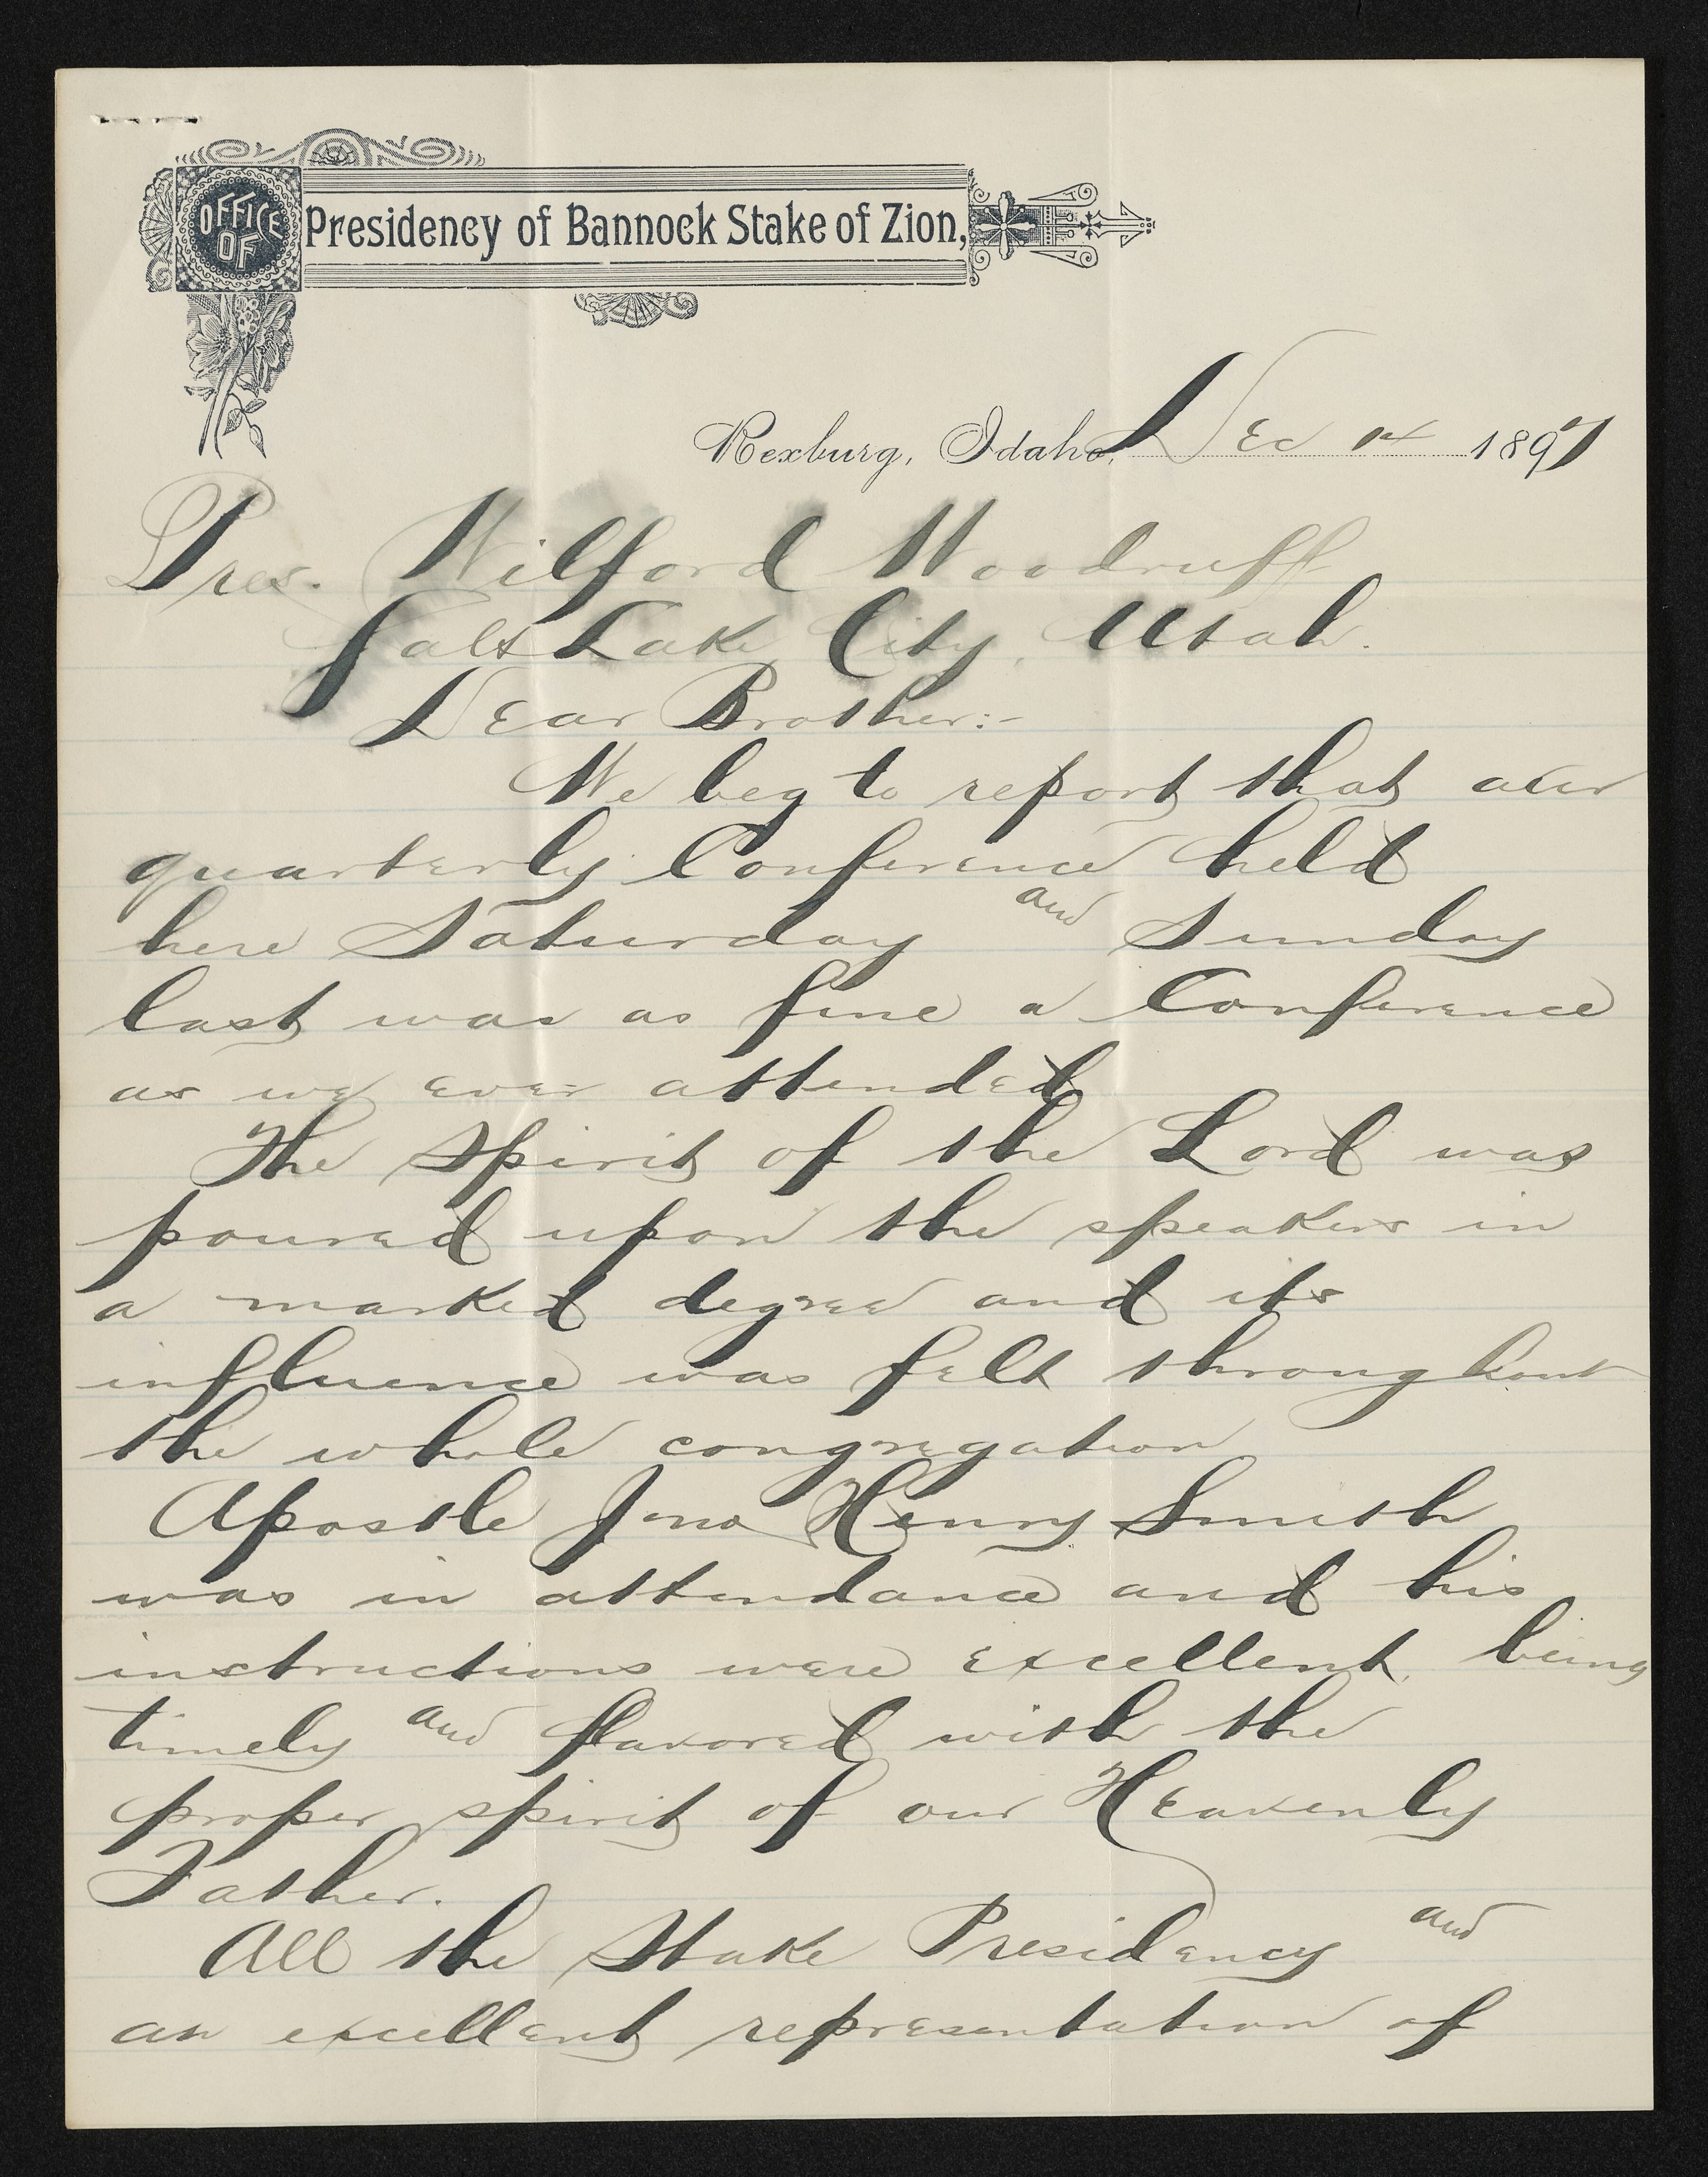 OFFICE OF Presidency of Bannock Stake of Zion,
Rexburg, Idaho, Dec 14 1897
Pres. Wilford Woodruff
Salt Lake City, Utah.
Dear Brother:-
We beg to report that our
quarterly Conference held
here Saturday and Sunday
last was as fine a Conference
as we ever attended
The Spirit of the Lord was
poured upon the speakers in
a marked degree and its
influence was felt throughout
the whole congregation
Apostle Jno Henry Smith
was in attendance and his
instructions were excellent, being
timely and flavored with the
proper spirit of our Heavenly
Father.
All the Stake Presidency and
an excellent representation of